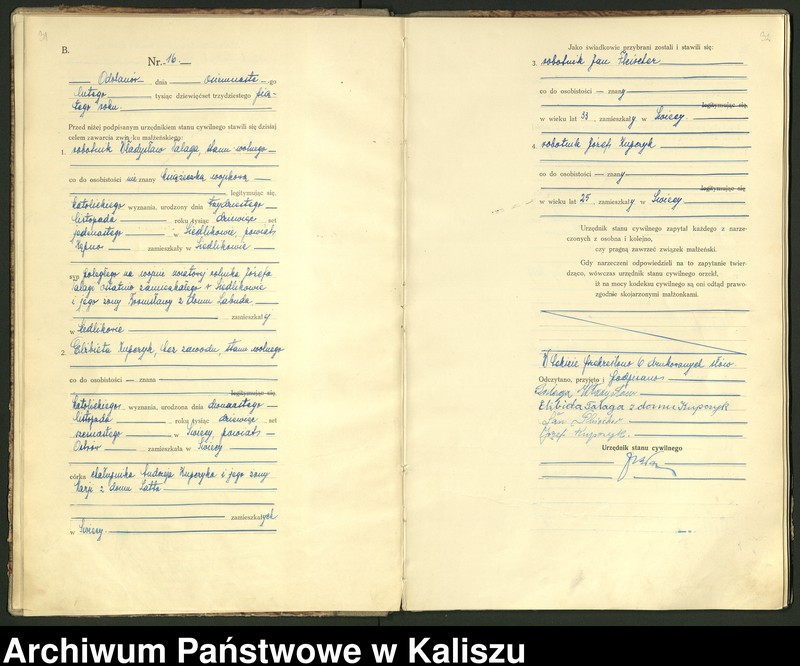 31
B.
Nr. 16.
Odolanów dnia osiemnasto-go
lutego tysiąc dziewięćset trzydziestego pią-
tego roku.
Przed niżej podpisanym urzędnikiem stanu cywilnego stawili się dzisiaj
celem zawarcia związku małżeńskiego:
1. robotnik Władysław Talaga, stanu wolnego
co do osobistości nie znany książeczką wojskową
legitymując się,
katolickiego wyznania, urodzony dnia trzydziestego
listopada roku tysiąc dziewięć set
jedenastego w Siedlikowie, powiatu
Kępno zamieszkały w Siedlikowie
syn poległego na wojnie światowej rolnika Józefa
Talagi ostatnio zamieszkałego w Siedlikowie
i jego żony Bronisławy z domu Łabuda
zamieszkały
w Siedlikowie
2. Elżbieta Kupczyk, bez zawodu, stanu wolnego
co do osobistości — znana
legitymując się,
katolickiego wyznania, urodzona dnia dwunastego
listopada roku tysiąc dziewięć set
w Świecy, powiatu
Ostrów zamieszkała w Świecy
córka chałupnika Kupczyka i jego żony
Marji z domu
zamieszkałych
w Świecy.
32
Jako świadkowie przybrani zostali i stawili się:
3. robotnik Jan Fleischer
co do osobistości — znany
legitymując się,
w wieku lat 33, zamieszkały w Świecy.
4. robotnik Józef Kupczyk
co do osobistości — znany
legitymując się,
w wieku lat 25, zamieszkały w Świecy
Urzędnik stanu cywilnego zapytał każdego z narze-
czonych z osobna i kolejno,
czy pragną zawrzeć związek małżeński.
Gdy narzeczeni odpowiedzieli na to zapytanie twier-
dząco, wówczas urzędnik stanu cywilnego orzekł,
iż na mocy kodeksu cywilnego są oni odtąd prawo-
zgodnie skojarzonymi małżonkami.
W tekście przekreślono 6 drukowanych słów.
Odczytano, przyjęto i podpisano
Talaga Władysław
Elżbida Talaga z domu Kupczyk
Jan
Józef Kupczyk.
Urzędnik stanu cywilnego
Archiwum Państwowe w Kaliszu